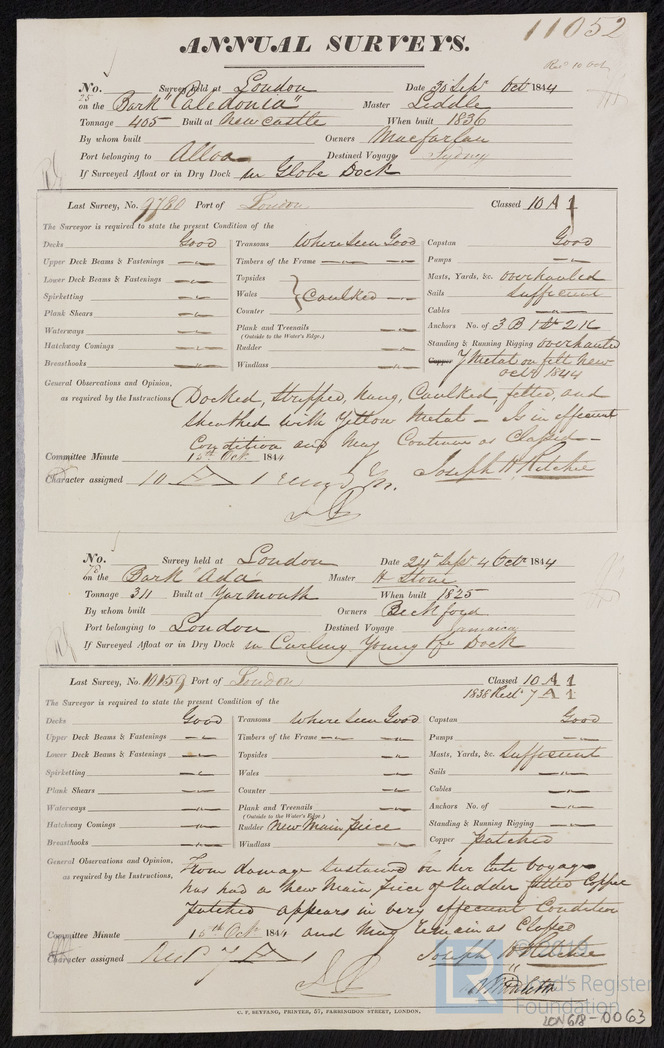 11052
ANNUAL SURVEYS.
Recd 10 Oct
No. 25 Survey held at London Date 30 Sepr Octr 1844
on the Bark "Caledonia" Master Liddle
Tonnage 405 Built at Newcastle When built 1836
By whom built Owners Macfarlan
Port belonging to Alloa Destined Voyage Sydney
If Surveyed Afloat or in Dry Dock in Globe Dock
Last Survey, No. 9780 Port of London Classed 10 A 1
The Surveyor is required to state the present Condition of the
Decks Good Transoms Where Seen Good Capstan Good
Upper Deck Beams & Fastenings " Timbers of the Frame " Pumps "
Lower Deck Beams & Fastenings " Topsides Masts, Yards, &c. overhauled
Spirketting " Wales } Caulked " Sails Sufficient
Plank Shears " Counter Cables "
Waterways " Plank and Treenails " Anchors No. of 3 B 1 St 2 K
(Outside to the Water's Edge.)
Hatchway Comings " Rudder " Standing & Running Rigging overhauled
Breasthooks " Windlass " Copper Y Metal on felt new
Octr 1844
General Observations and Opinion,
as required by the Instructions, Docked, Stripped, Caulked, felted, and
Sheathed with Yellow Metal – Is in efficient
Condition and May Continue as Classed –
Committee Minute 15th Oct. 1844
Character assigned 10 A 1 Joseph H. Ritchie
No. 78 Survey held at London Date 24th Sepr 4 Octr 1844
on the Bark "Ada" Master H Stone
Tonnage 311 Built at Yarmouth When built 1825
By whom built Owners Beckford
Port belonging to London Destined Voyage Jamaica
If Surveyed Afloat or in Dry Dock in Curling Young & Co Dock
Last Survey, No. 10159 Port of London Classed 10 A 1
1836 Restd 7 A 1
The Surveyor is required to state the present Condition of the
Decks Good Transoms Where Seen Good Capstan Good
Upper Deck Beams & Fastenings " Timbers of the Frame " Pumps "
Lower Deck Beams & Fastenings " Topsides " Masts, Yards, &c. Sufficient
Spirketting " Wales " Sails "
Plank Shears " Counter " Cables "
Waterways " Plank and Treenails " Anchors No. of "
(Outside to the Water's Edge.)
Hatchway Comings " Rudder New Main piece Standing & Running Rigging "
Breasthooks " Windlass " Copper patched
General Observations and Opinion,
as required by the Instructions, From damage Sustained on her late Voyage
has had a New Main piece of Rudder fitted Copper
patched appears in very efficient Condition
and May Remain as Classed
Committee Minute 15th Oct. 1844
Character assigned A 1 Joseph H Ritchie
Lloyd's Register
Foundation
C. F. SEYFANG, PRINTER, 57, FARRINGDON STREET, LONDON.
LON618-0063